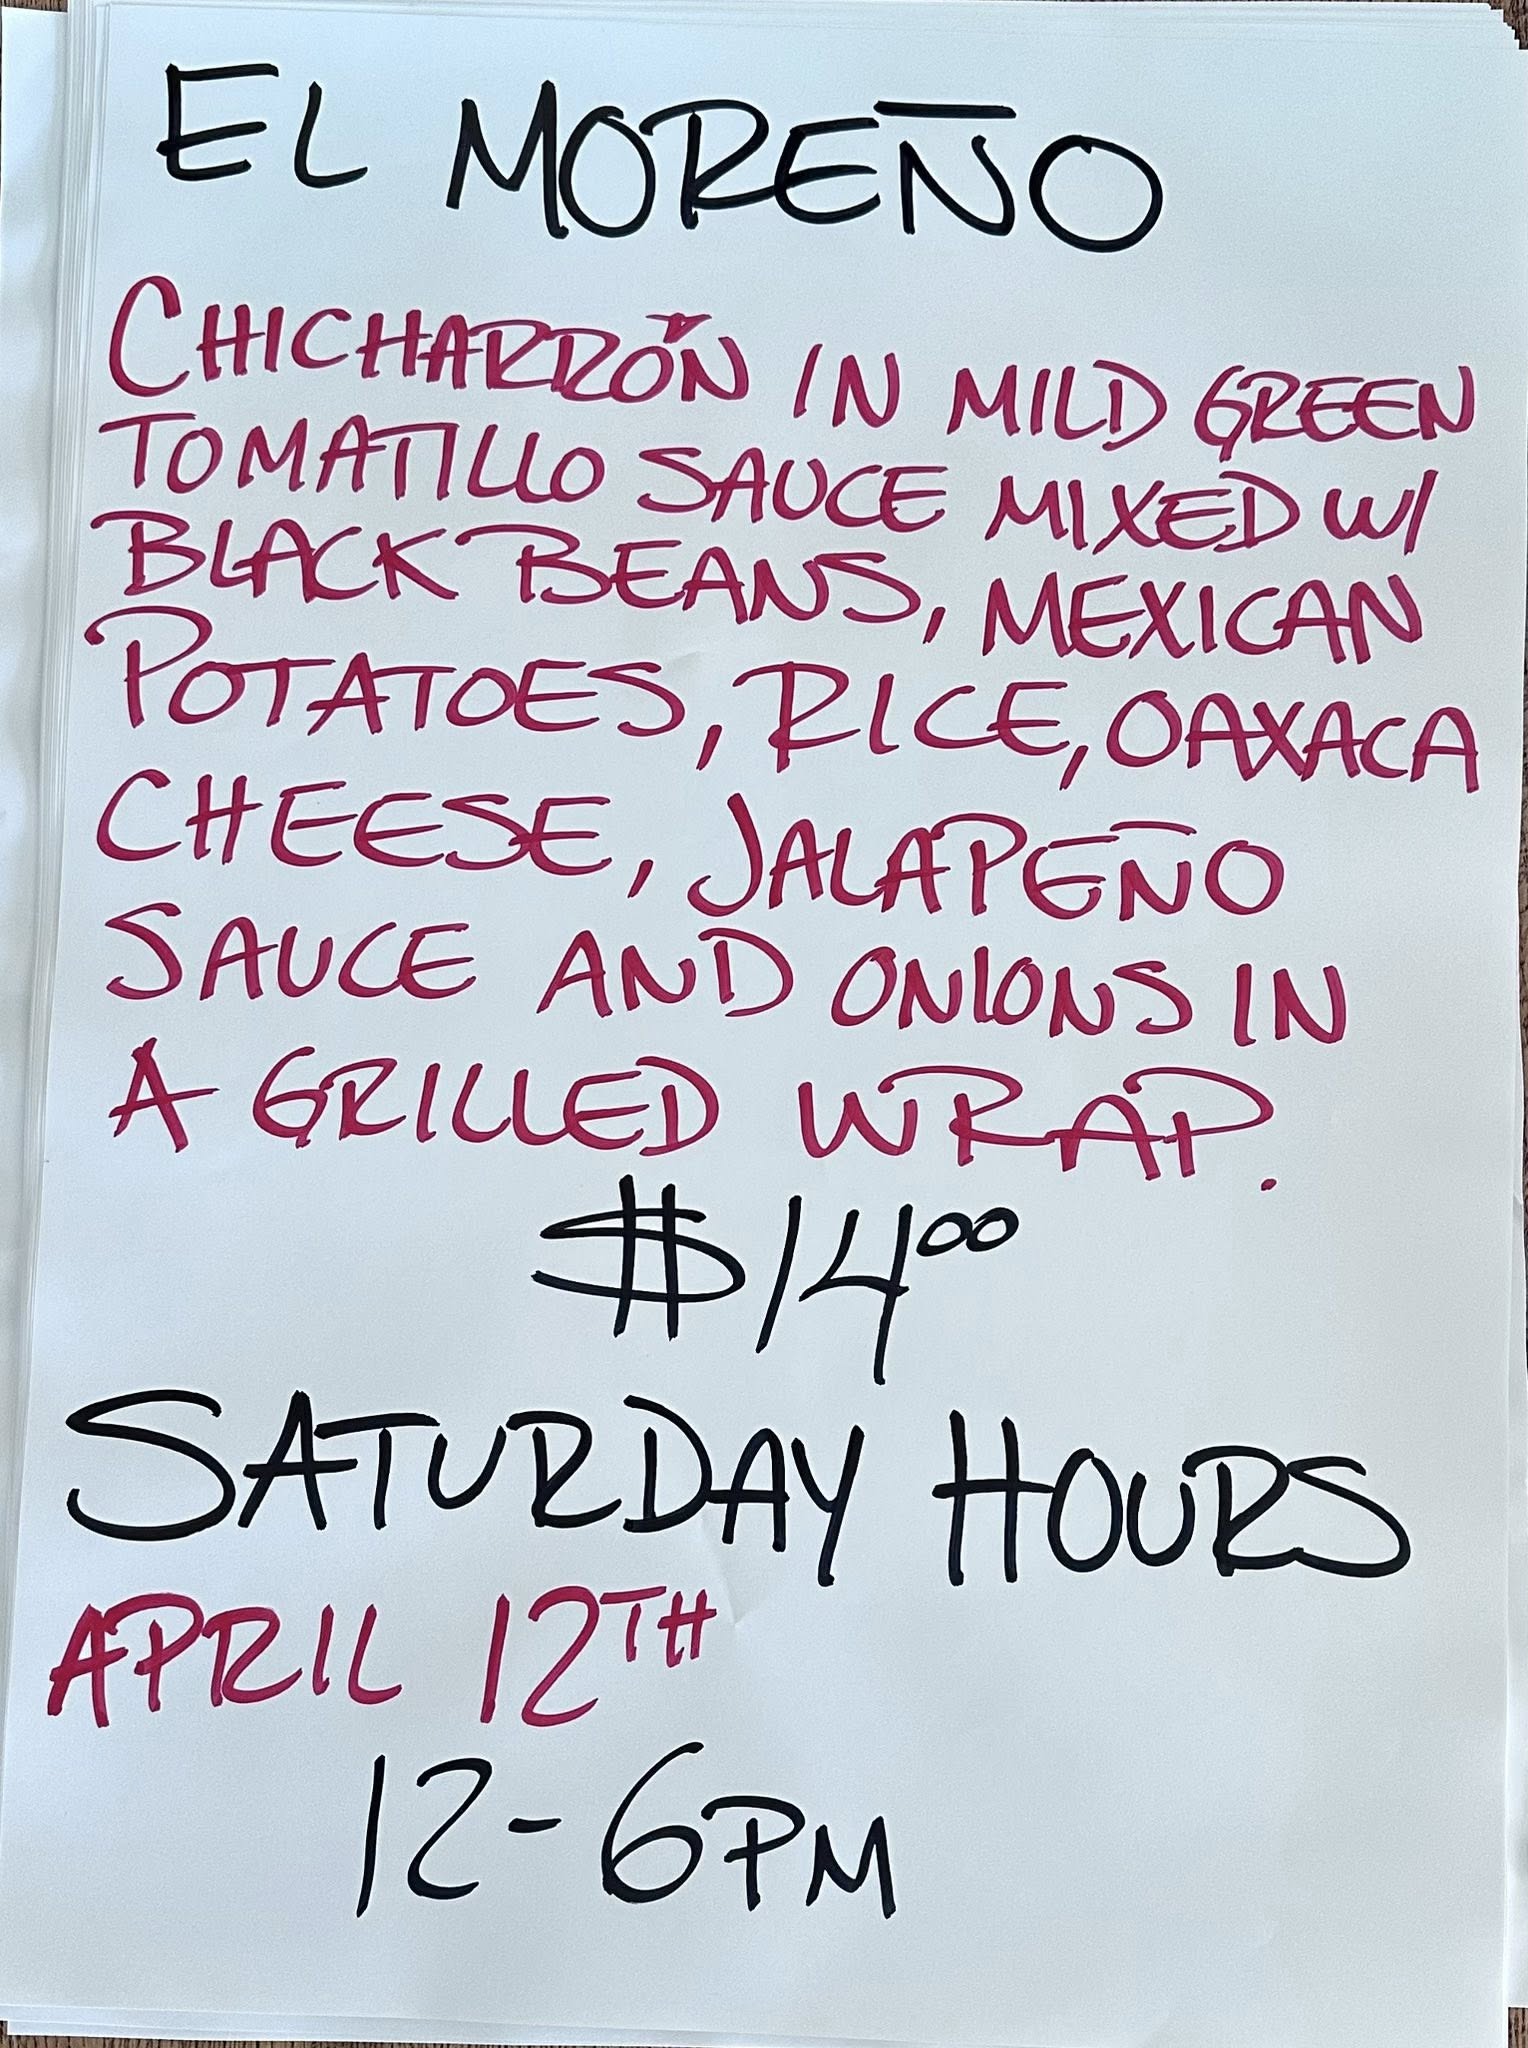 EL MOREÑO
CHICHARRÓN IN MILD GREEN
TOMATILLO SAUCE MIXED W/
BLACK BEANS, MEXICAN
POTATOES, RICE, OAXACA
CHEESE, JALAPEÑO
SAUCE AND ONIONS IN
A GRILLED WRAP.
$14⁰⁰
SATURDAY HOURS
APRIL 12TH
12-6PM